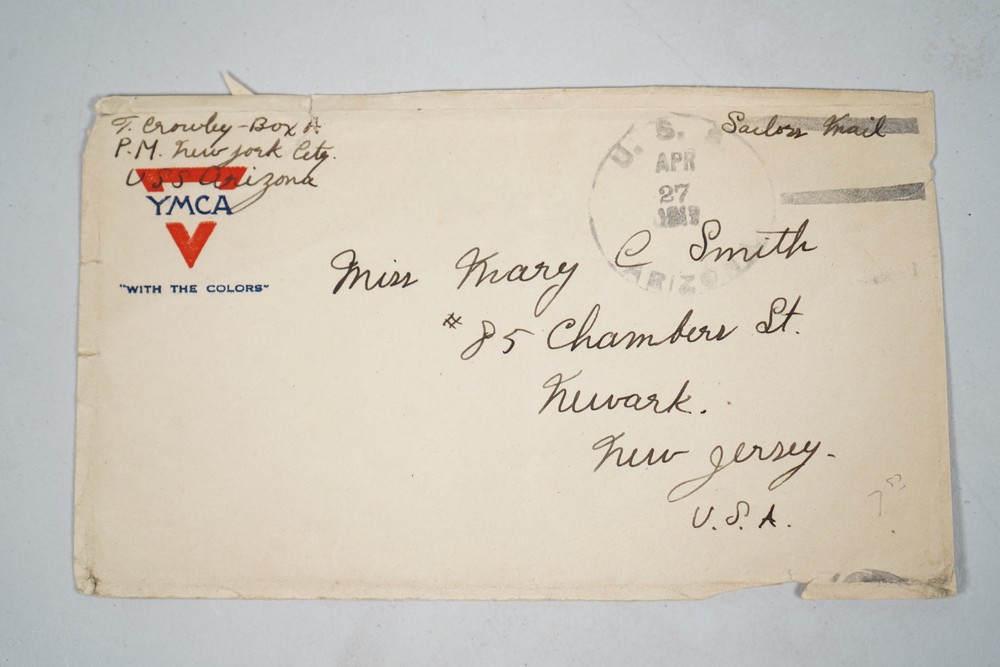 T. Crowley - Box A
P.M. New York City.
USS Arizona
YMCA
"WITH THE COLORS"
U. S.
APR
27
ARIZONA
Sailors Mail
Miss Mary C Smith
# 85 Chambers St.
Newark.
New Jersey.
U.S.A.